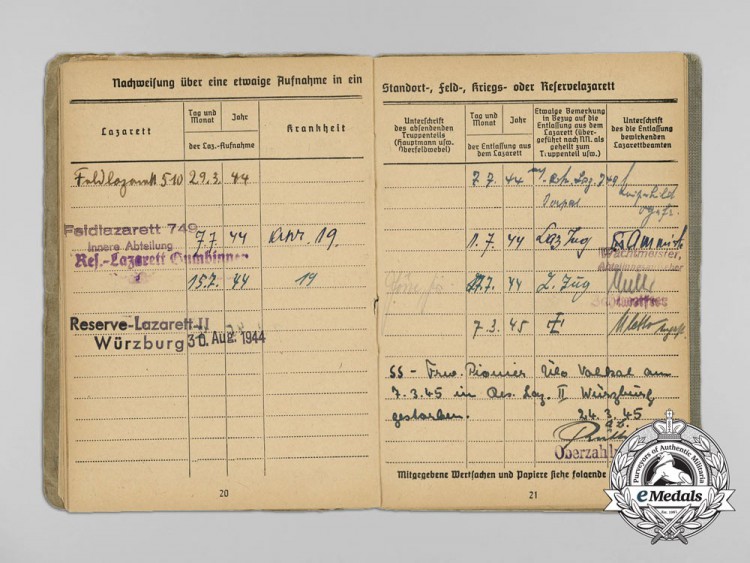 Nachweisung über eine etwaige Aufnahme in ein
Lazarett
Tag und
Monat
Jahr
der Laz.-Aufnahme
Krankheit
Feldlazarett 510 29.3. 44
Feldlazarett 749
Innere Abteilung
7.7. 44
19.
Res.-Lazarett Gumbinnen
15.7. 44 19
Reserve-Lazarett II
Würzburg 30. Aug. 1944
20
Standort-, Feld-, Kriegs- oder Reservelazarett
Unterschrift
des absendenden
Truppenteils
(Hauptmann usw.
Oberfeldwebel)
Tag und
Monat
Jahr
der Entlassung aus
dem Lazarett
Etwaige Bemerkung
in Bezug auf die
Entlassung aus dem
Lazarett (über-
geführt nach NN. als
geheilt zum
Truppenteil usw.)
Unterschrift
des die Entlassung
bewirkenden
Lazarettbeamten
7.7. 44
7. 44 Laz Zug
Wachtmeister,
7. 44 L. Zug
7.3. 45
SS - Frw. Pionier Ülo am
7.3.45 in Res. Laz. II Würzburg
gestorben. 24.3.45
Oberzahl
Mitgegebene Wertsachen und Papiere siehe folgende
21
Purveyors of Authentic Militaria
eMedals